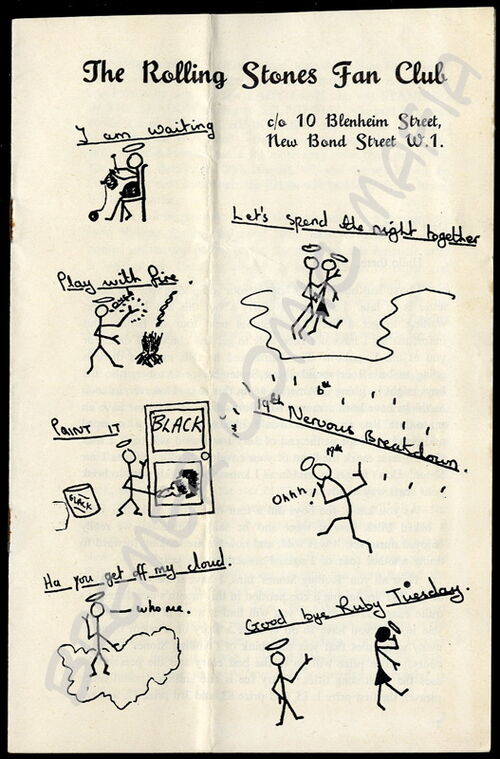 The Rolling Stones Fan Club
c/o 10 Blenheim Street,
New Bond Street W.1.
I am waiting
Let's spend the night together
Play with fire.
ouch
Paint it
BLACK
BLACK
19th Nervous Breakdown.
6th
19th
Ohhh
Ha you get off my cloud.
who me.
Good bye Ruby Tuesday.